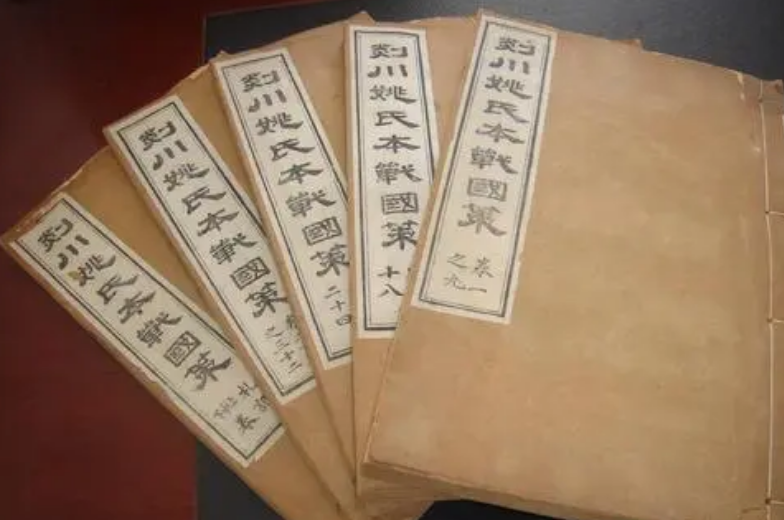 剡川姚氏本戰國策
卷一
之九
剡川姚氏本戰國策
十八
剡川姚氏本戰國策
二十四
剡川姚氏本戰國策
之三十三
剡川姚氏本戰國策
札
卷